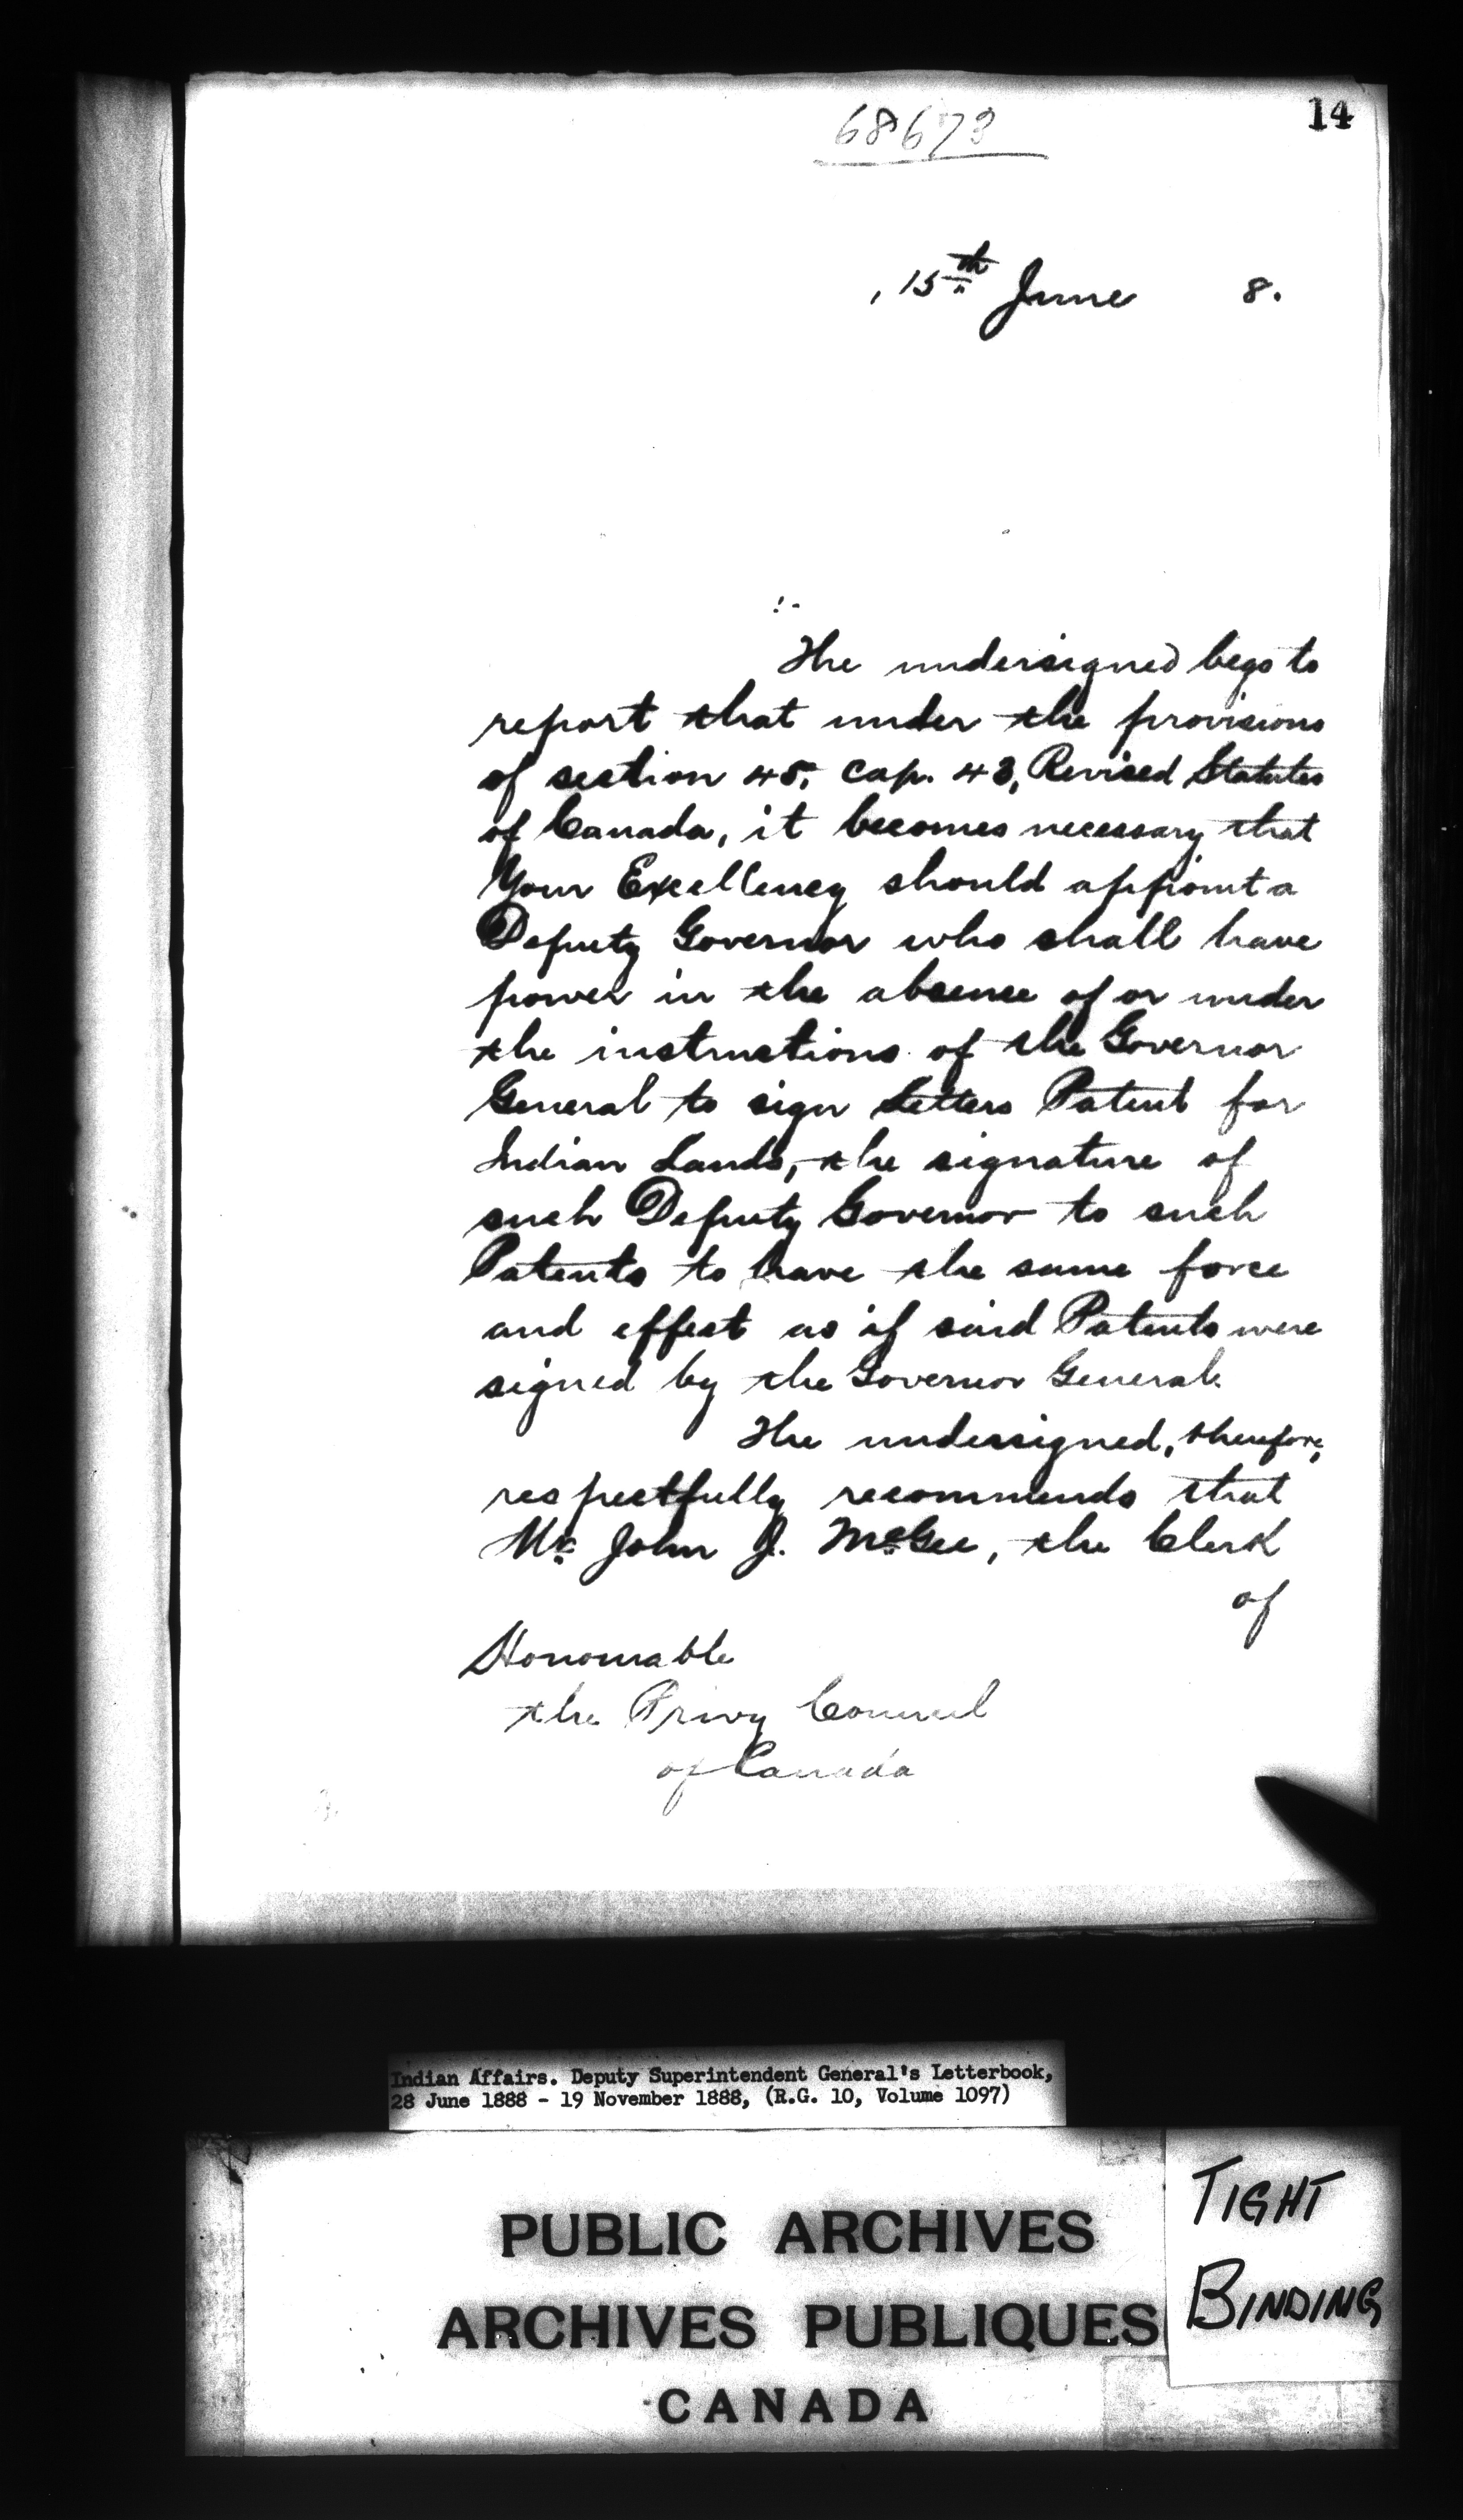 14
68673
, 15th June 8.
:-
The undersigned begs to
report that under the provisions
of section 45, Cap. 43, Revised Statutes
of Canada, it becomes necessary that
Your Excellency should appoint a
Deputy Governor who shall have
power in the absence of or under
the instructions of the Governor
General to sign Letters Patent for
Indian Lands, the signature of
such Deputy Governor to such
Patents to have the same force
and effect as if said Patents were
signed by the Governor General.
The undersigned, therefore,
respectfully recommends that
Mr. John J. McGee, the Clerk
of
Honourable
the Privy Council
of Canada
Indian Affairs. Deputy Superintendent General's Letterbook,
28 June 1888 - 19 November 1888, (R.G. 10, Volume 1097)
PUBLIC ARCHIVES
ARCHIVES PUBLIQUES
CANADA
TIGHT
BINDING